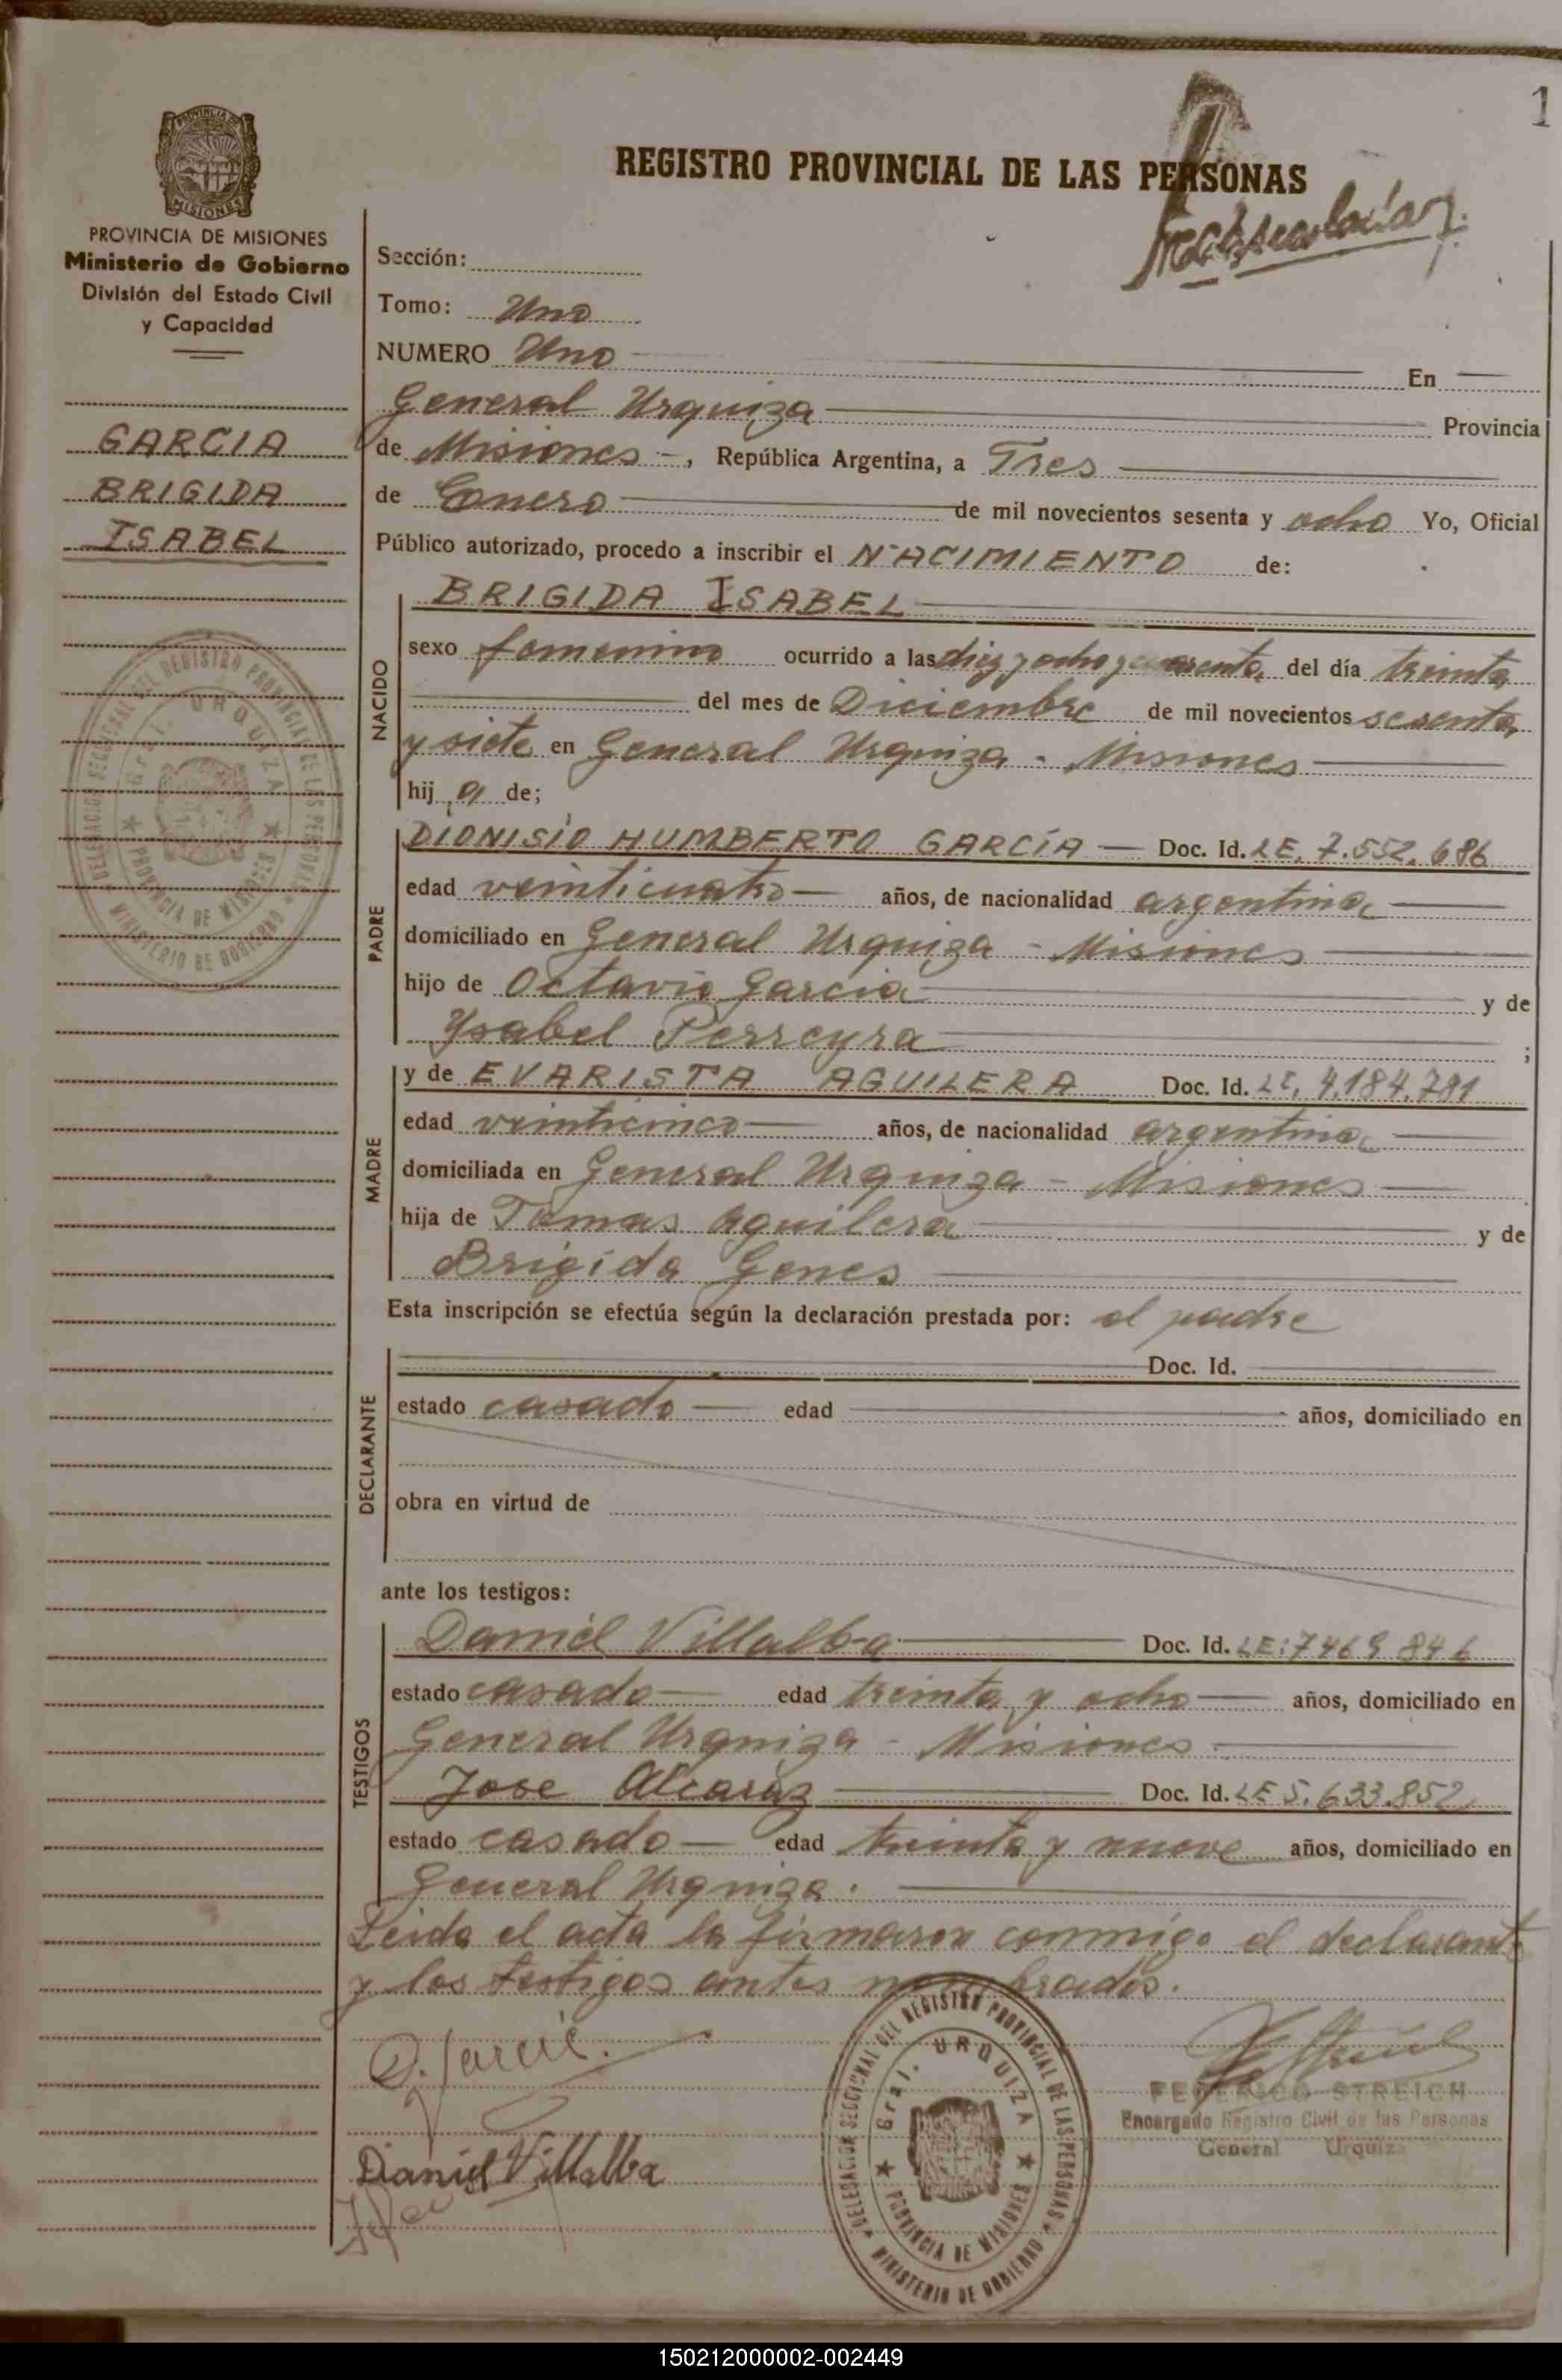 1
REGISTRO PROVINCIAL DE LAS PERSONAS
PROVINCIA DE
MISIONES
PROVINCIA DE MISIONES
Ministerio de Gobierno
División del Estado Civil
y Capacidad
GARCIA
BRIGIDA
ISABEL
Sección:
Tomo: Uno
NUMERO Uno En
General Urquiza Provincia
de Misiones -, República Argentina, a Tres
de Enero de mil novecientos sesenta y ocho Yo, Oficial
Público autorizado, procedo a inscribir el NACIMIENTO de:
NACIDO
BRIGIDA ISABEL
sexo femenino ocurrido a las diez y ocho y cuarenta del día treinta
del mes de Diciembre de mil novecientos sesenta
y siete en General Urquiza - Misiones
hij a de;
DELEGACION SECCIONAL DEL REGISTRO PROVINCIAL DE LAS PERSONAS
Gral. URQUIZA
PROVINCIA DE MISIONES
MINISTERIO DE GOBIERNO
PADRE
DIONISIO HUMBERTO GARCÍA — Doc. Id. LE. 7.552.686
edad veinticuatro — años, de nacionalidad argentina
domiciliado en General Urquiza - Misiones
hijo de Octavio Garcia y de
Ysabel Perreyra ;
MADRE
y de EVARISTA AGUILERA Doc. Id. LC. 4.184.781
edad veinticinco — años, de nacionalidad argentina
domiciliada en General Urquiza - Misiones
hija de Tomas Aguilera y de
Brigida Genes
Esta inscripción se efectúa según la declaración prestada por: el padre
DECLARANTE
Doc. Id.
estado casado — edad años, domiciliado en
obra en virtud de
ante los testigos:
TESTIGOS
Daniel Villalba Doc. Id. LE: 7469 846
estado casado — edad treinta y ocho — años, domiciliado en
General Urquiza - Misiones
Jose Alcaraz Doc. Id. LE 5.633.852
estado casado — edad treinta y nueve años, domiciliado en
General Urquiza.
Leida el acta la firmaron conmigo el declarante
y los testigos antes nombrados.
D. Garcia.
Daniel Villalba
DELEGACION SECCIONAL DEL REGISTRO PROVINCIAL DE LAS PERSONAS
Gral. URQUIZA
PROVINCIA DE MISIONES
MINISTERIO DE GOBIERNO
FEDERICO STREICH
Encargado Registro Civil de las Personas
General Urquiza
150212000002-002449